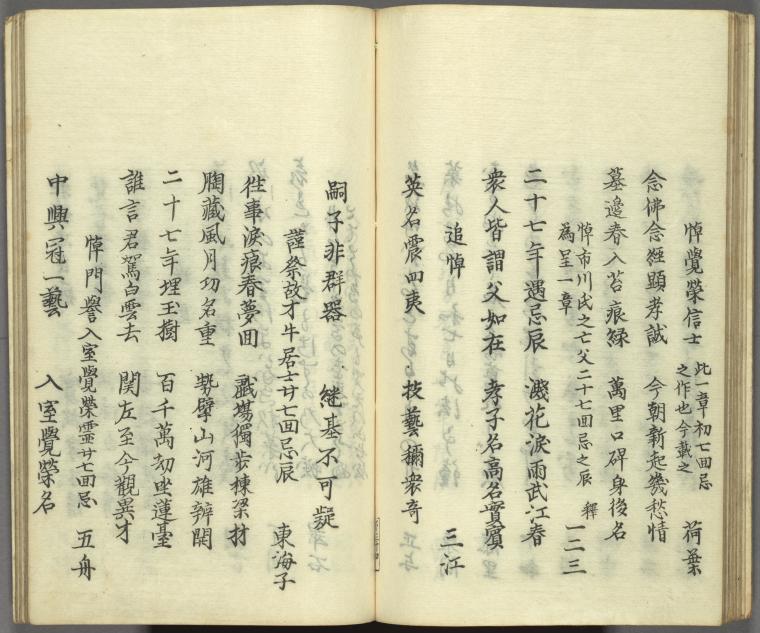 悼覺榮信士 此一章初七回忌之作也今載之 荷葉
念佛念經顕孝誠 今朝新起幾愁情
墓邊春入苔痕緑 萬里口碑身後名
悼市川氏之亡父二十七回忌之辰 釋
為呈一章 一二三
二十七年遇忌辰 濺花淚雨武江春
衆人皆謂父如在 孝子名高名實賓
追悼 三江
英名震四夷 技藝稱衆奇
嗣子非群器 継基不可疑
謹祭故才牛居士廿七回忌辰 東海子
往事淚痕春夢回 戲場獨歩棟梁材
胸藏風月功名重 勢擘山河雄辨開
二十七年埋玉樹 百千萬劫坐蓮臺
誰言君駕白雲去 関左至今觀異才
悼門譽入室覺榮霊廿七回忌 五舟
中興冠一藝 入室覺榮名